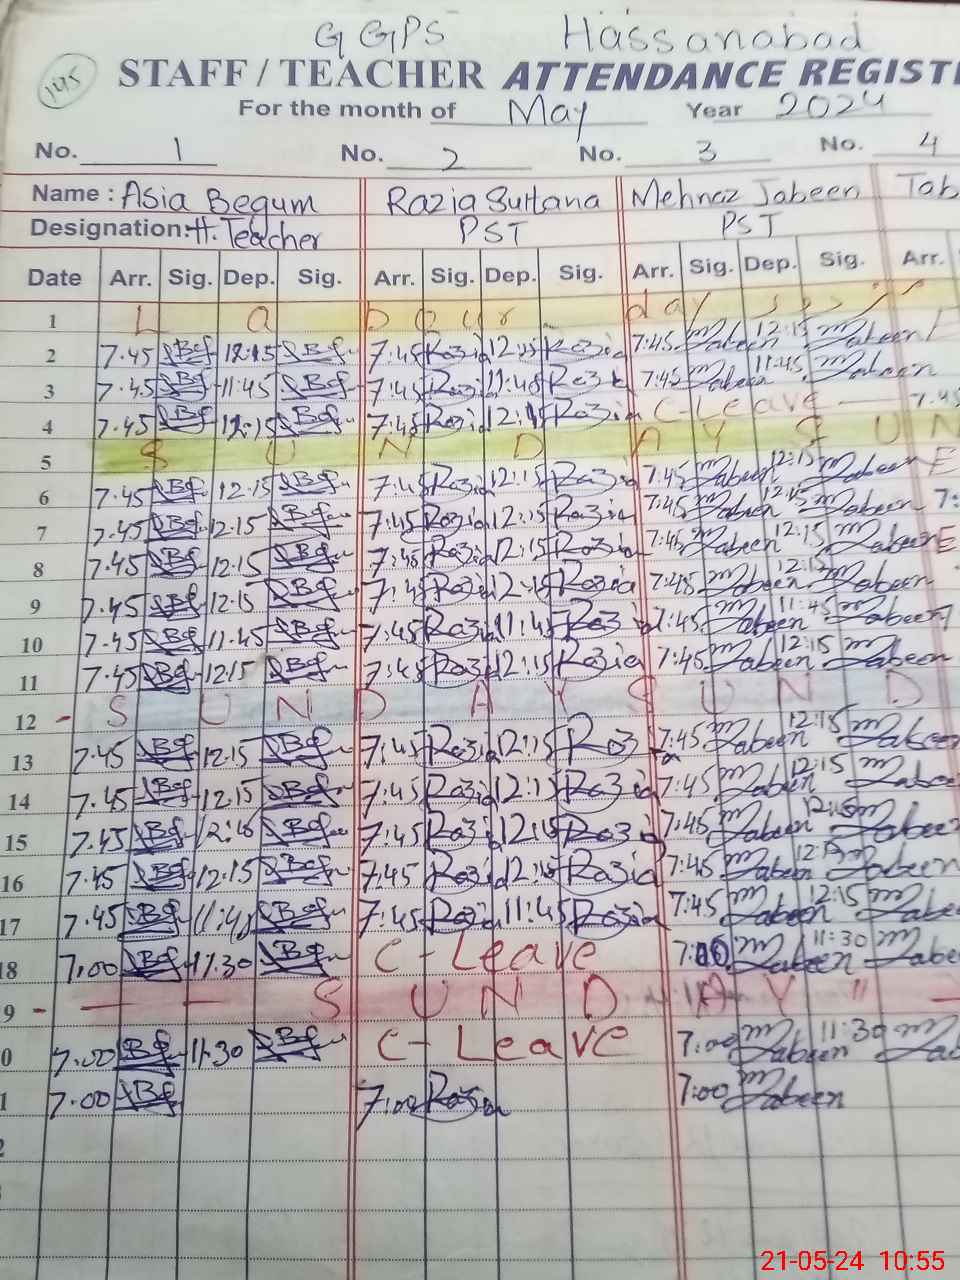 G GPS Hassanabad
145
STAFF / TEACHER ATTENDANCE REGISTE
For the month of May Year 2024
No. 1 No. 2 No. 3 No. 4
Name : Asia Begum Razia Sultana Mehnaz Jabeen Tab
Designation: H. Teacher PST PST
Date Arr. Sig. Dep. Sig. Arr. Sig. Dep. Sig. Arr. Sig. Dep. Sig. Arr.
1 L a b o u r day
2 7.45 12:15 7:45 Razia 12:15 Razia 7:45 Jabeen 12:15 Jabeen
3 7.45 11:45 7:45 Razia 11:45 Razia 7:45 Jabeen 11:45 Jabeen
4 7.45 12:15 7:45 Razia 12:15 Razia C-Leave 7.45
5 S U N D A Y S U N
6 7.45 12.15 7:45 Razia 12:15 Razia 7:45 Jabeen 12:15 Jabeen
7 7.45 12.15 7:45 Razia 12:15 Razia 7:45 Jabeen 12:15 Jabeen 7:
8 7.45 12.15 7:45 Razia 12:15 Razia 7:45 Jabeen 12:15 Jabeen
9 7.45 12.15 7:45 Razia 12:15 Razia 7:45 Jabeen 12:15 Jabeen
10 7.45 11.45 7:45 Razia 11:45 Razia 7:45 Jabeen 11:45 Jabeen
11 7.45 12.15 7:45 Razia 12:15 Razia 7:45 Jabeen 12:15 Jabeen
12 - S U N D A Y S U N D
13 7.45 12.15 7:45 Razia 12:15 Razia 7:45 Jabeen 12:15 Jabeen
14 7.45 12.15 7:45 Razia 12:15 Razia 7:45 Jabeen 12:15 Jabeen
15 7.45 12:15 7:45 Razia 12:15 Razia 7:45 Jabeen 12:15 Jabeen
16 7.45 12.15 7:45 Razia 12:15 Razia 7:45 Jabeen 12:15 Jabeen
17 7.45 11:45 7:45 Razia 11:45 Razia 7:45 Jabeen 12:15 Jabeen
18 7.00 11.30 C - Leave 7:00 Jabeen 11:30 Jabee
9 - — — S U N D A Y " —
0 7.00 11.30 C - Leave 7:00 Jabeen 11:30 Jab
1 7.00 7:00 Razia 7:00 Jabeen
2
21-05-24 10:55